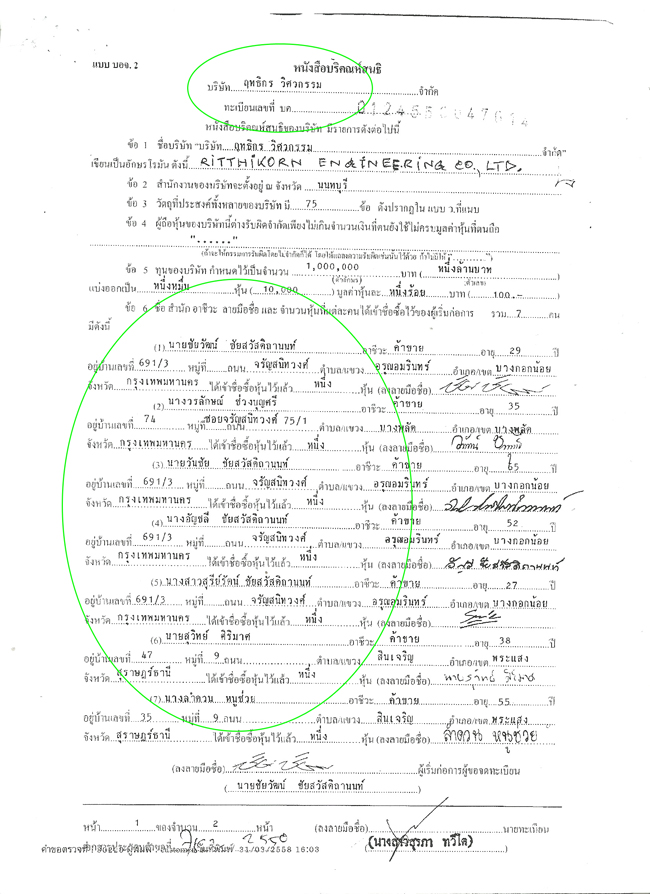 แบบ บอจ. 2
หนังสือบริคณห์สนธิ
บริษัท ฤทธิกร วิศวกรรม จำกัด
ทะเบียนเลขที่ บค.
หนังสือบริคณห์สนธิของบริษัท มีรายการดังต่อไปนี้
ข้อ 1 ชื่อบริษัท "บริษัท ฤทธิกร วิศวกรรม จำกัด"
เขียนเป็นอักษรโรมัน ดังนี้ RITTHIKORN ENGINEERING CO., LTD.
ข้อ 2 สำนักงานของบริษัทจะตั้งอยู่ ณ จังหวัด นนทบุรี
ข้อ 3 วัตถุที่ประสงค์ทั้งหลายของบริษัท มี 75 ข้อ ดังปรากฏใน แบบ ว.ที่แนบ
ข้อ 4 ผู้ถือหุ้นของบริษัทนี้ต่างรับผิดจำกัดเพียงไม่เกินจำนวนเงินที่ตนยังใช้ไม่ครบมูลค่าหุ้นที่ตนถือ
"......"
ข้อ 5 ทุนของบริษัท กำหนดไว้เป็นจำนวน 1,000,000 บาท ( หนึ่งล้านบาท )
แบ่งออกเป็น หนึ่งหมื่น หุ้น ( 10,000 ) มูลค่าหุ้นละ หนึ่งร้อย บาท ( 100.- )
ข้อ 6 ชื่อ สำนัก อาชีวะ ลายมือชื่อ และ จำนวนหุ้นที่แต่ละคนได้เข้าชื่อซื้อไว้ของผู้เริ่มก่อการ รวม 7 คน
มีดังนี้
(1) นายชัยวัฒน์ ชัยสวัสดิถานนท์ อาชีวะ ค้าขาย อายุ 29 ปี
อยู่บ้านเลขที่ 691/3 หมู่ที่ ถนน จรัญสนิทวงศ์ ตำบล/แขวง อรุณอมรินทร์ อำเภอ/เขต บางกอกน้อย
จังหวัด กรุงเทพมหานคร ได้เข้าชื่อซื้อหุ้นไว้แล้ว หนึ่ง หุ้น (ลงลายมือชื่อ)
(2) นางวรลักษณ์ ช่วงบุญศรี อาชีวะ ค้าขาย อายุ 35 ปี
อยู่บ้านเลขที่ 74 หมู่ที่ ถนน ซอยจรัญสนิทวงศ์ 75/1 ตำบล/แขวง บางพลัด อำเภอ/เขต บางพลัด
จังหวัด กรุงเทพมหานคร ได้เข้าชื่อซื้อหุ้นไว้แล้ว หนึ่ง หุ้น (ลงลายมือชื่อ)
(3) นายวันชัย ชัยสวัสดิถานนท์ อาชีวะ ค้าขาย อายุ 65 ปี
อยู่บ้านเลขที่ 691/3 หมู่ที่ ถนน จรัญสนิทวงศ์ ตำบล/แขวง อรุณอมรินทร์ อำเภอ/เขต บางกอกน้อย
จังหวัด กรุงเทพมหานคร ได้เข้าชื่อซื้อหุ้นไว้แล้ว หนึ่ง หุ้น (ลงลายมือชื่อ)
(4) นางอัญชลี ชัยสวัสดิถานนท์ อาชีวะ ค้าขาย อายุ 52 ปี
อยู่บ้านเลขที่ 691/3 หมู่ที่ ถนน จรัญสนิทวงศ์ ตำบล/แขวง อรุณอมรินทร์ อำเภอ/เขต บางกอกน้อย
จังหวัด กรุงเทพมหานคร ได้เข้าชื่อซื้อหุ้นไว้แล้ว หนึ่ง หุ้น (ลงลายมือชื่อ)
(5) นางสาวสุรีย์วัฒน์ ชัยสวัสดิถานนท์ อาชีวะ ค้าขาย อายุ 27 ปี
อยู่บ้านเลขที่ 691/3 หมู่ที่ ถนน จรัญสนิทวงศ์ ตำบล/แขวง อรุณอมรินทร์ อำเภอ/เขต บางกอกน้อย
จังหวัด กรุงเทพมหานคร ได้เข้าชื่อซื้อหุ้นไว้แล้ว หนึ่ง หุ้น (ลงลายมือชื่อ)
(6) นายสุวิทย์ ศิริมาศ อาชีวะ ค้าขาย อายุ 38 ปี
อยู่บ้านเลขที่ 47 หมู่ที่ 9 ถนน ตำบล/แขวง สินเจริญ อำเภอ/เขต พระแสง
จังหวัด สุราษฎร์ธานี ได้เข้าชื่อซื้อหุ้นไว้แล้ว หนึ่ง หุ้น (ลงลายมือชื่อ)
(7) นางลำดวน หนูช่วย อาชีวะ ค้าขาย อายุ 55 ปี
อยู่บ้านเลขที่ 35 หมู่ที่ 9 ถนน ตำบล/แขวง สินเจริญ อำเภอ/เขต พระแสง
จังหวัด สุราษฎร์ธานี ได้เข้าชื่อซื้อหุ้นไว้แล้ว หนึ่ง หุ้น (ลงลายมือชื่อ) ลำดวน หนูช่วย
(ลงลายมือชื่อ) ผู้เริ่มก่อการผู้ขอจดทะเบียน
( นายชัยวัฒน์ ชัยสวัสดิถานนท์ )
หน้า 1 ของจำนวน 2 หน้า (ลงลายมือชื่อ) นายทะเบียน
2550
31/03/2558 16:03